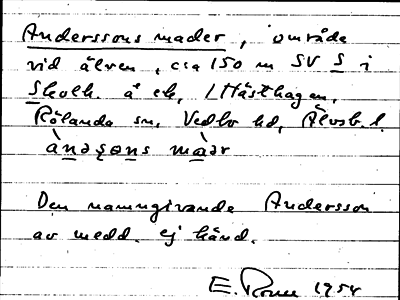 Anderssons mader, område
vid älven, c:a 150 m SV S i
Skolh. å ek, / Hästhagen,
Rölanda sn, Vedbo hd, Älvsb. l.
ànəʂəns màər
Den namngivande Andersson
av medd. ej känd.
E. 1954